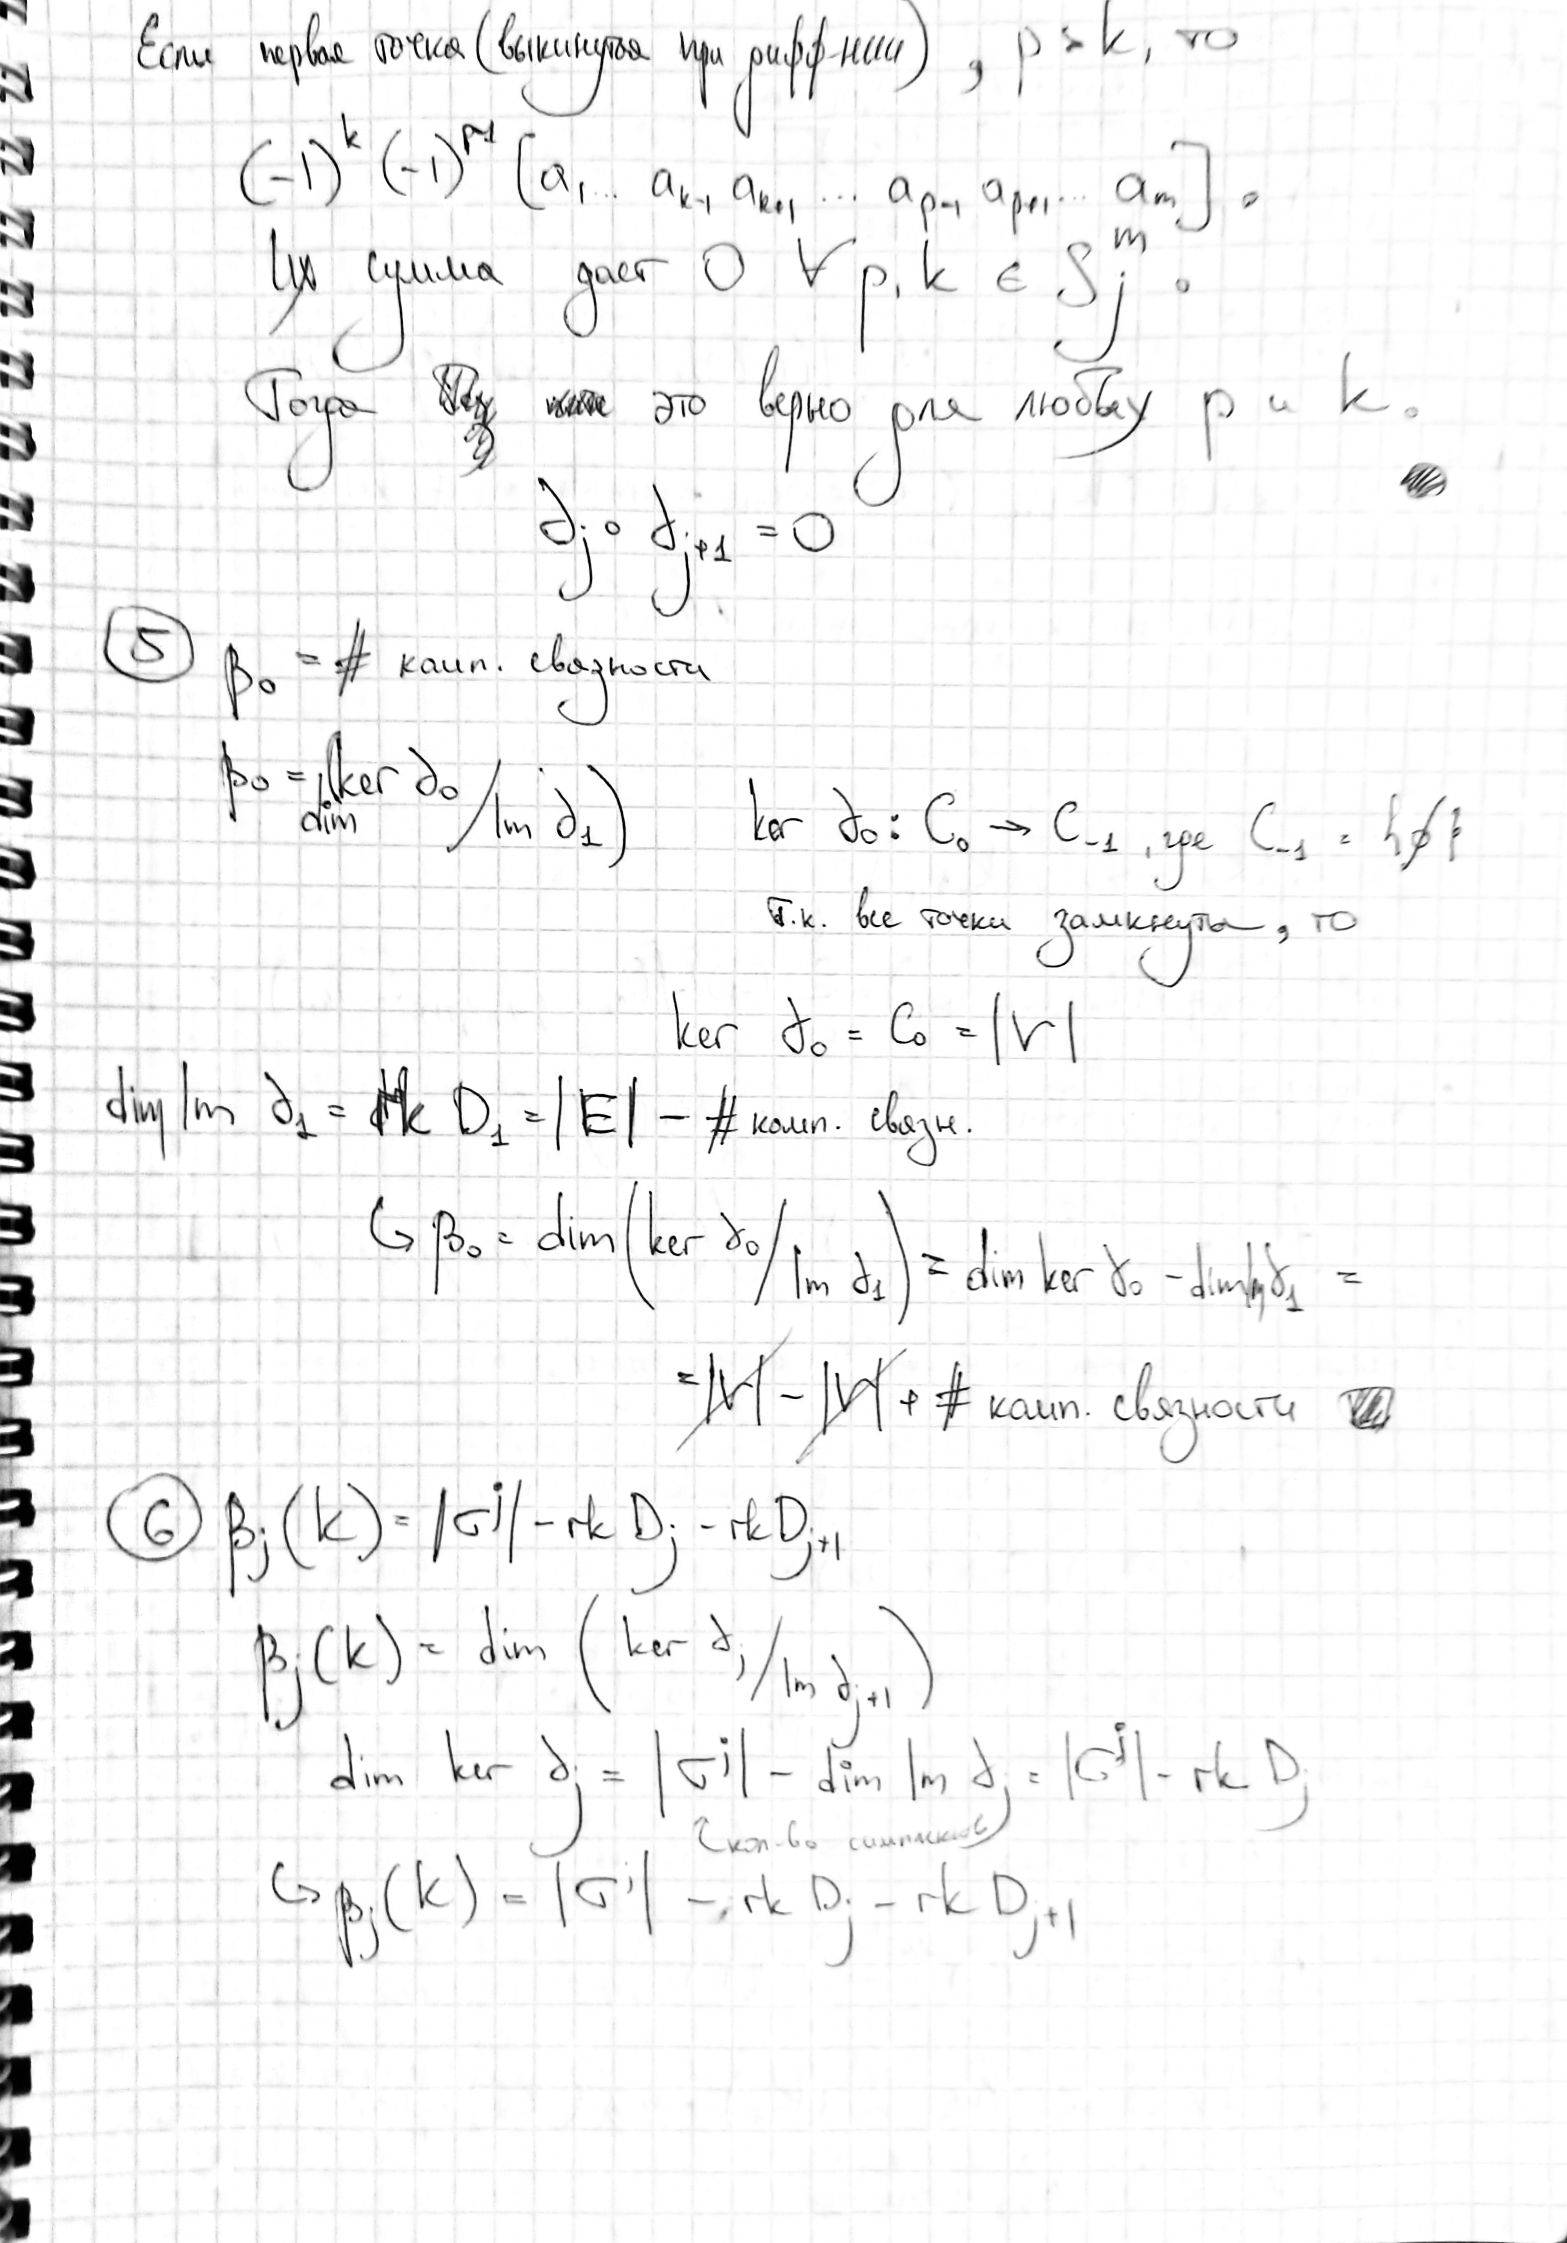 Если первая точка (выкинутая при дифф-нии), p > k, то
(-1)^k (-1)^{p-1} [a_1 ... a_{k-1} a_{k+1} ... a_{p-1} a_{p+1} ... a_m].
Их сумма даст 0 ∀ p, k ∈ S_j^m.
Тогда это верно для любых p и k.
∂_j ∘ ∂_{j+1} = 0
⑤ β_0 = # комп. связности
β_0 = dim (ker ∂_0 / Im ∂_1) ker ∂_0 : C_0 → C_{-1}, где C_{-1} = {∅}
Т.к. все точки замкнуты, то
ker ∂_0 = C_0 = |V|
dim Im ∂_1 = rk D_1 = |E| - # комп. связн.
↪ β_0 = dim (ker ∂_0 / Im ∂_1) = dim ker ∂_0 - dim Im ∂_1 =
= |V| - |V| + # комп. связности
⑥ β_j(k) = |σ^j| - rk D_j - rk D_{j+1}
β_j(k) = dim (ker ∂_j / Im ∂_{j+1})
dim ker ∂_j = |σ^j| - dim Im ∂_j = |σ^j| - rk D_j
кол-во симплексов
↪ β_j(k) = |σ^j| - rk D_j - rk D_{j+1}